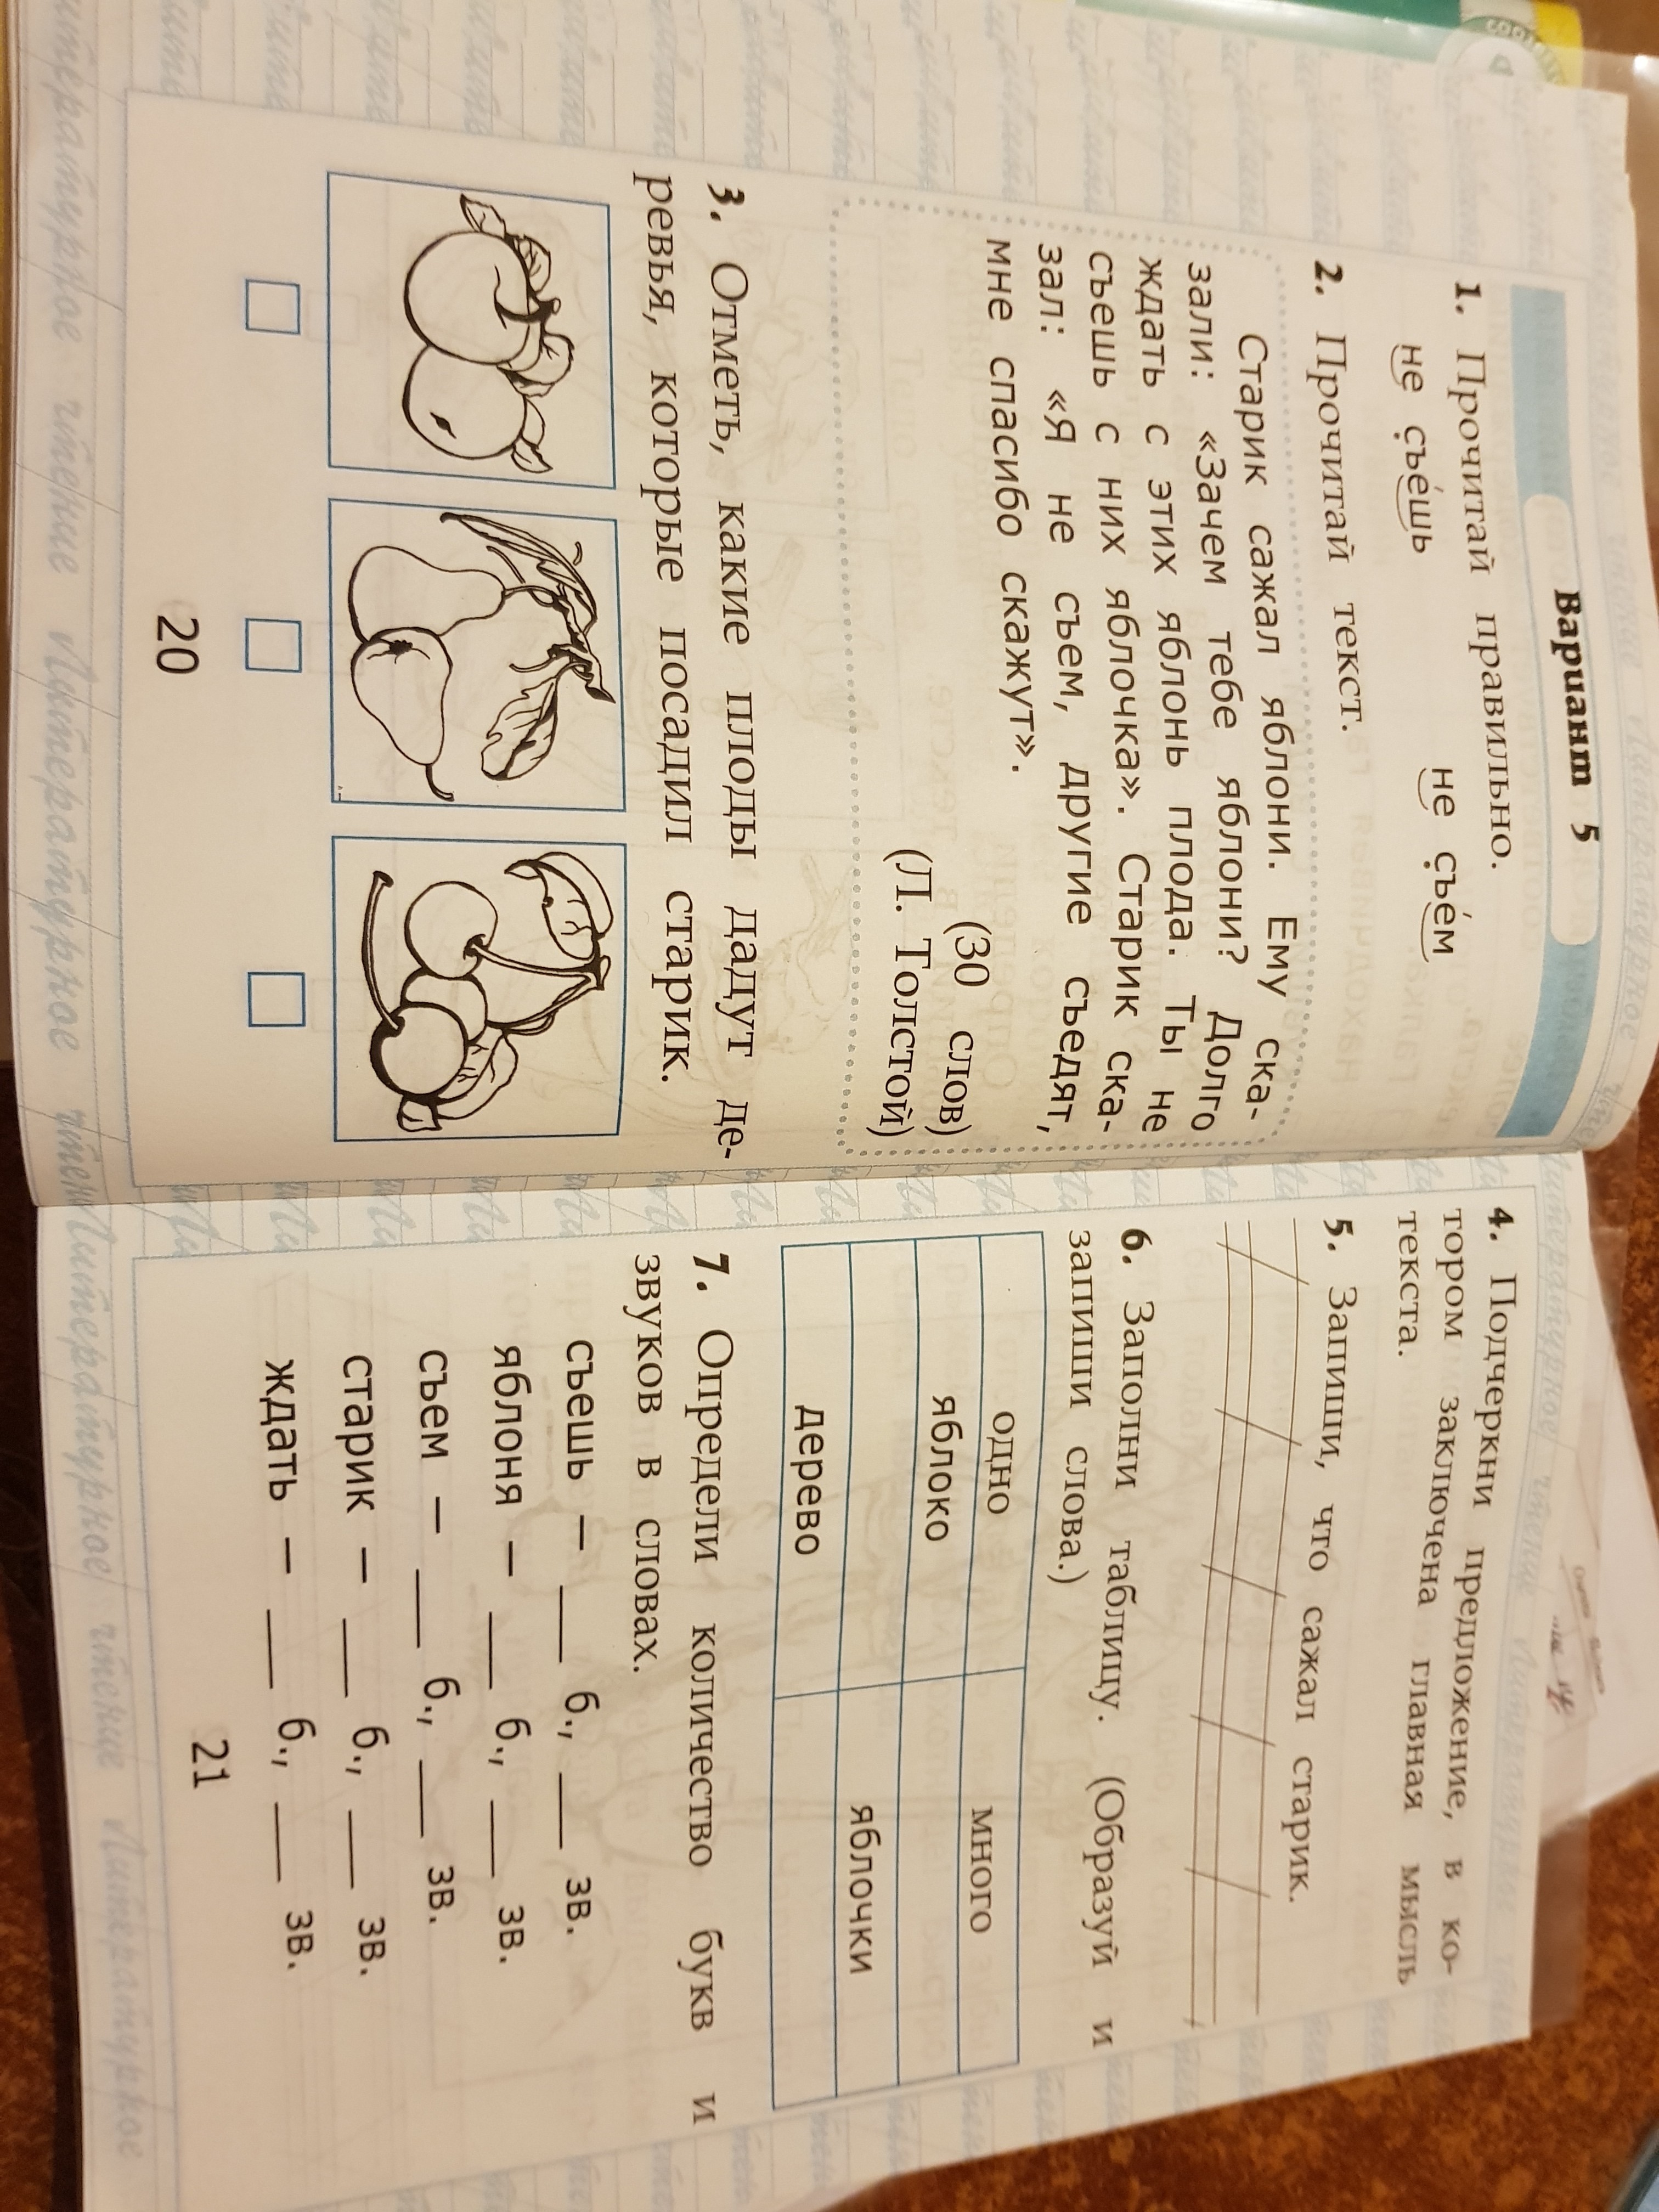 Вариант 5
1. Прочитай правильно.
не съе́шь не съе́м
2. Прочитай текст.
Старик сажал яблони. Ему ска-
зали: «Зачем тебе яблони? Долго
ждать с этих яблонь плода. Ты не
съешь с них яблочка». Старик ска-
зал: «Я не съем, другие съедят,
мне спасибо скажут».
(30 слов)
(Л. Толстой)
3. Отметь, какие плоды дадут де-
ревья, которые посадил старик.
20
4. Подчеркни предложение, в ко-
тором заключена главная мысль
текста.
5. Запиши, что сажал старик.
6. Заполни таблицу. (Образуй и
запиши слова.)
одно много
яблоко
яблочки
дерево
7. Определи количество букв и
звуков в словах.
съешь – ___ б., ___ зв.
яблоня – ___ б., ___ зв.
съем – ___ б., ___ зв.
старик – ___ б., ___ зв.
ждать – ___ б., ___ зв.
21
Литературное чтение Литературное чтение
Литературное чтение Литературное